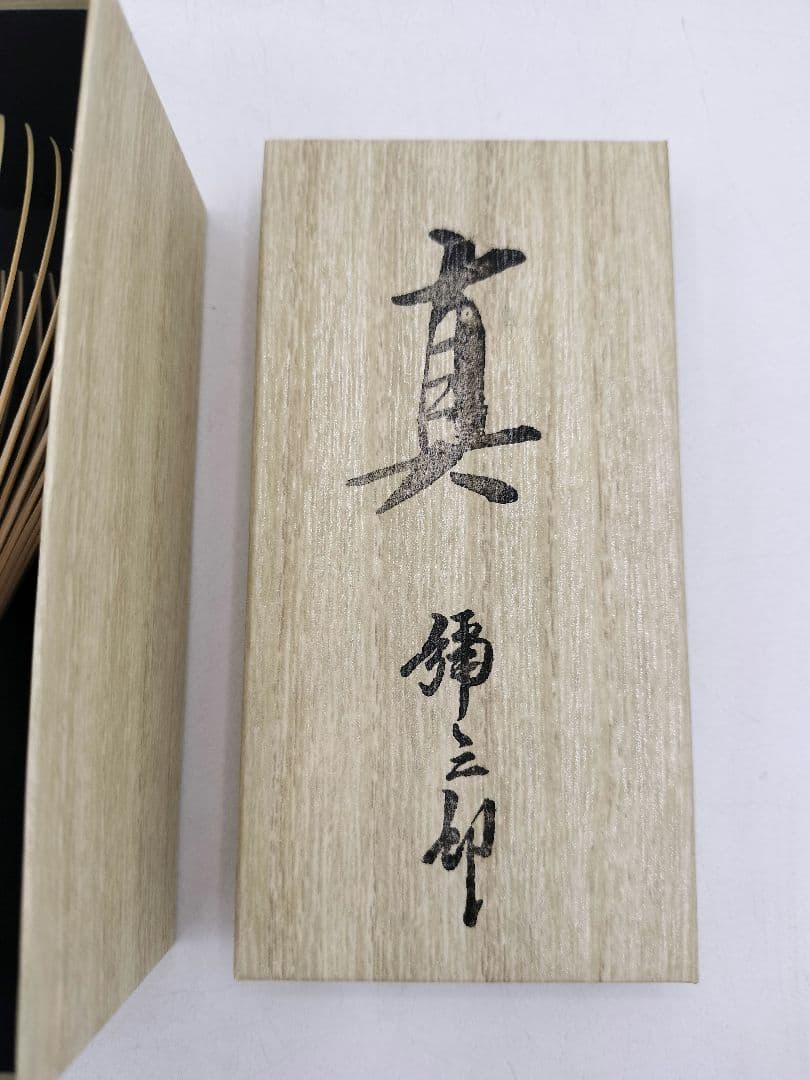 真
彌三郎